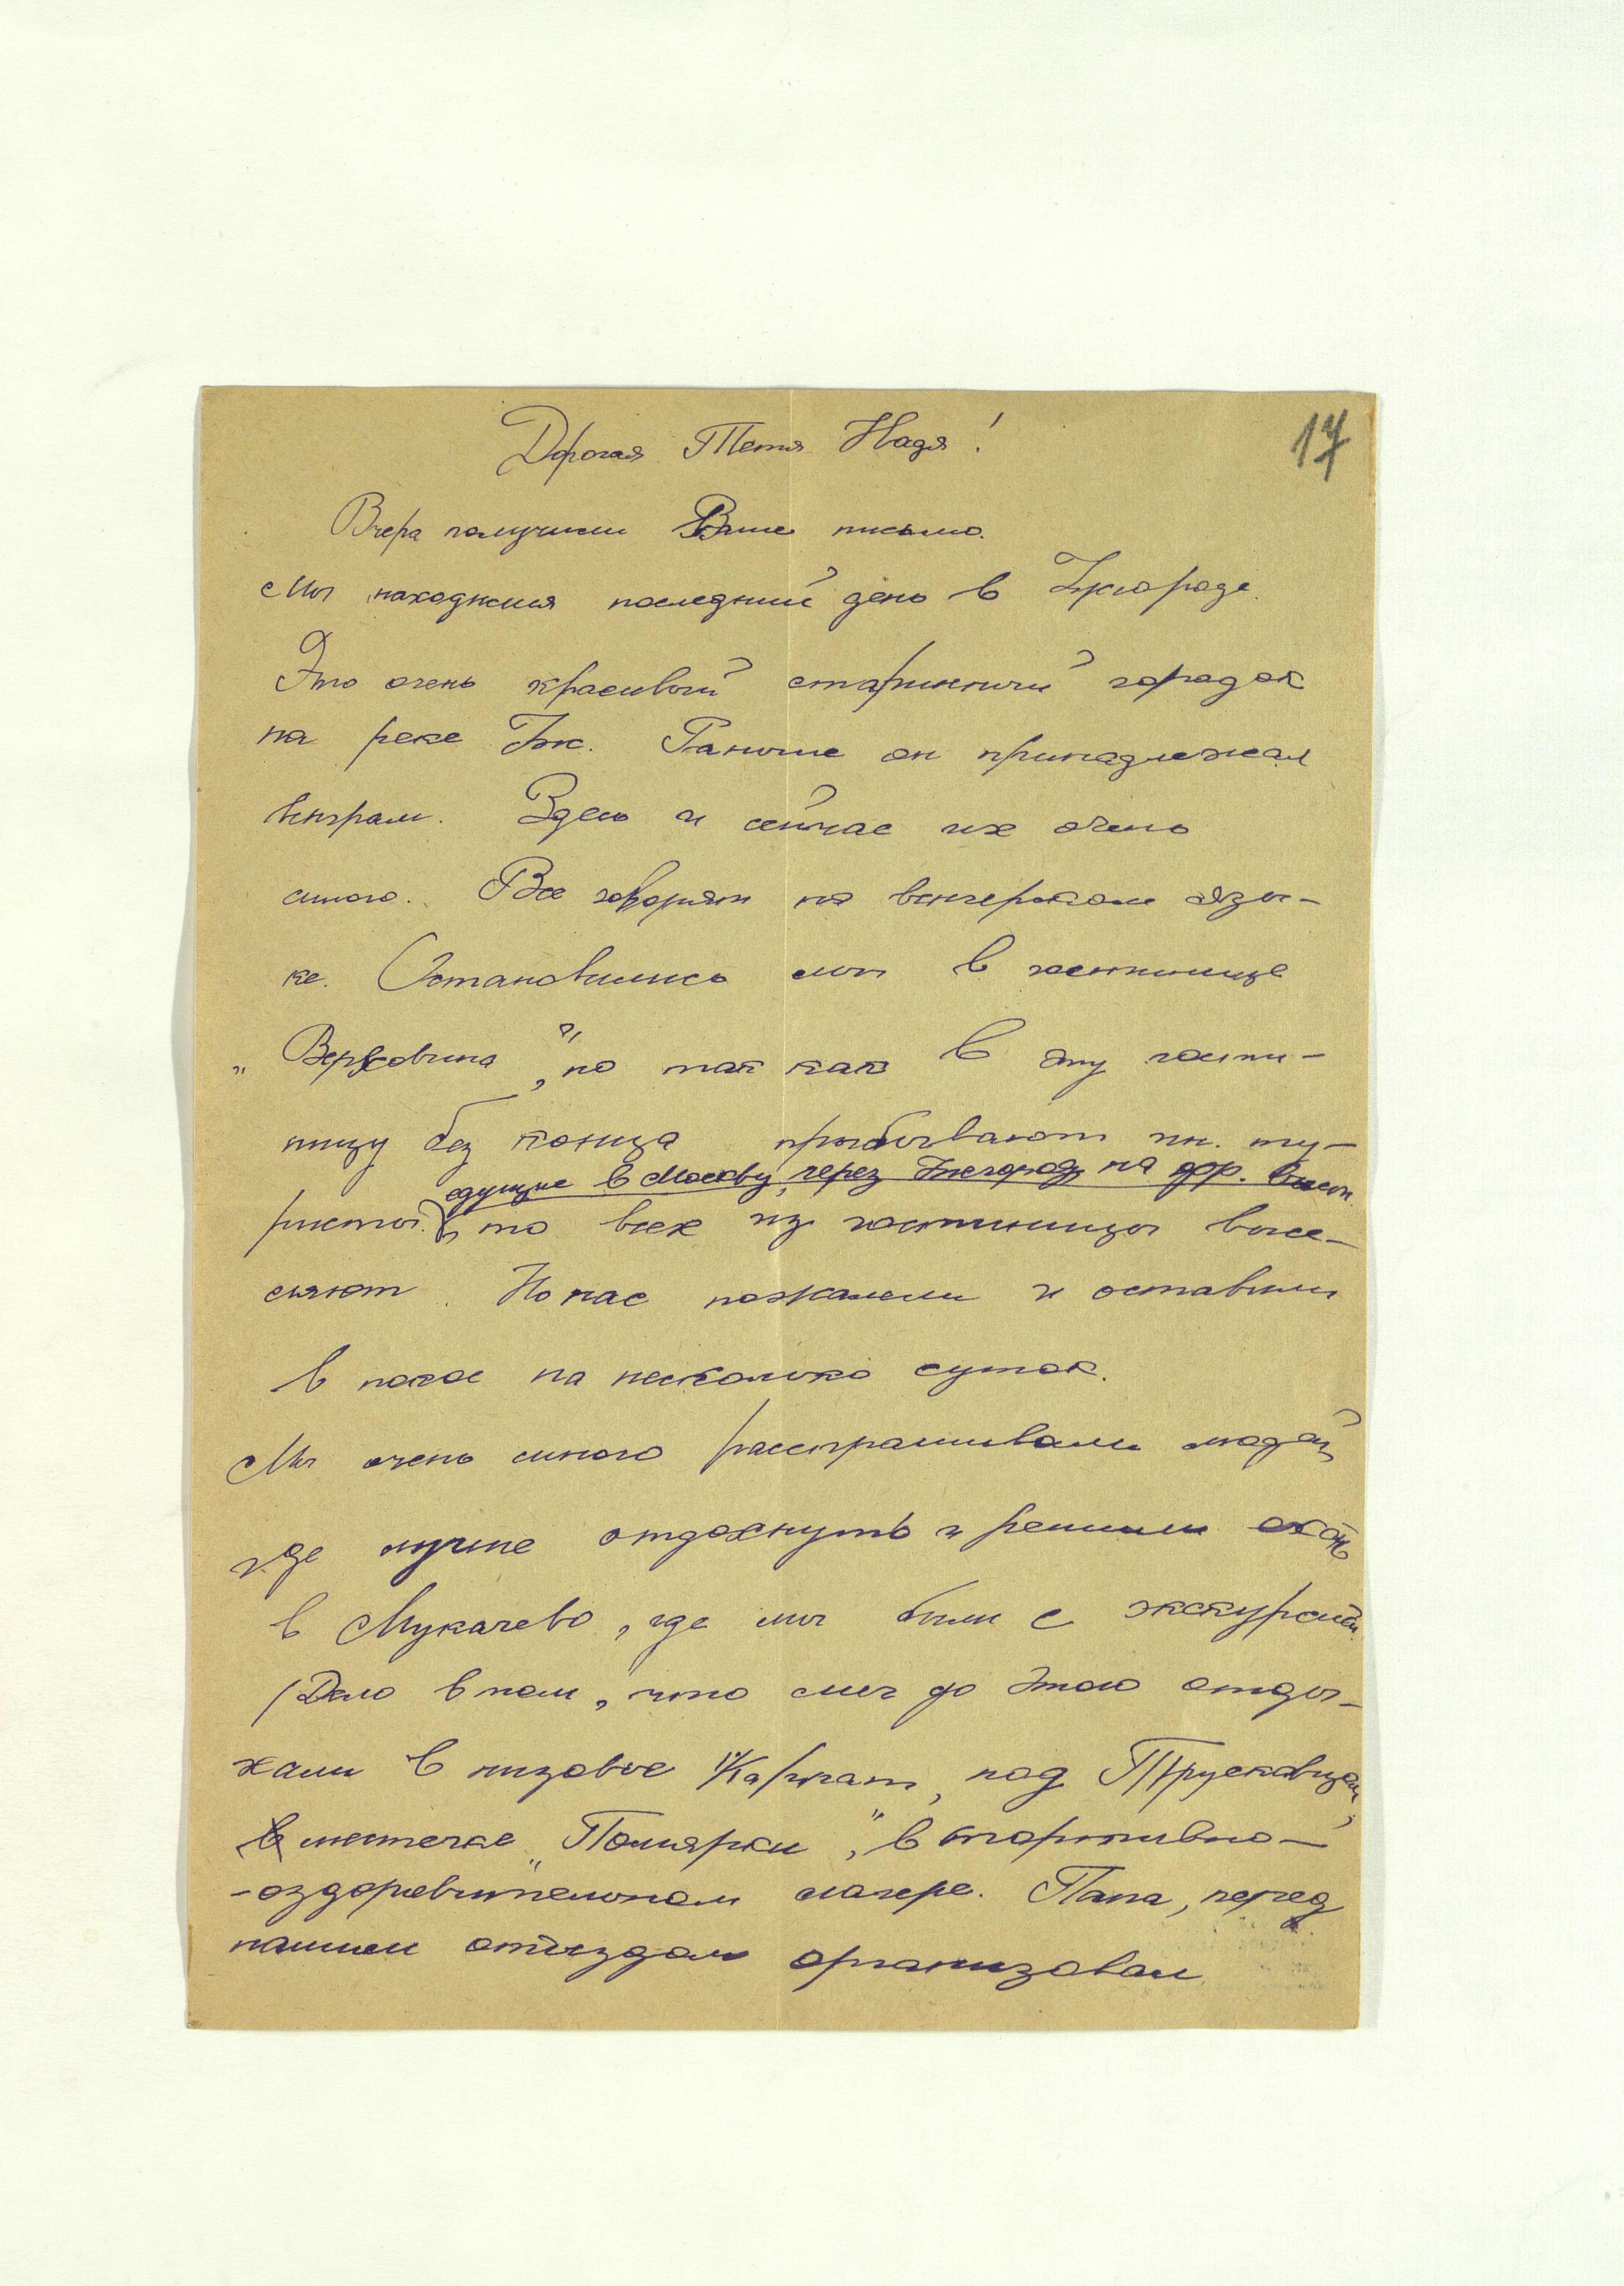 17
Дорогая Тетя Надя!
Вчера получили Ваше письмо.
Мы находимся последний день в Ужгороде.
Это очень красивый старинный городок
на реке Уж. Раньше он принадлежал
венграм. Здесь и сейчас их очень
много. Все говорят на венгерском язы-
ке. Остановились мы в гостинице
„Верховина", но так как в эту гости-
ницу без конца прибывают ин. ту-
едущие в Москву, через Ужгород, на
ристы, то всех из гостиницы высе-
сляют. Но нас пожалели и оставили
в покое на несколько суток.
Мы очень много расспрашивали людей,
где лучше отдохнуть и решили ехать
в Мукачево, где мы были с экскурсией.
(Дело в том, что мы до этого отды-
хали в низовье Карпат, под Трускавцем,
в местечке „Помярки", в спортивно-
-оздоровительном лагере. Папа, перед
нашим отъездом организовал